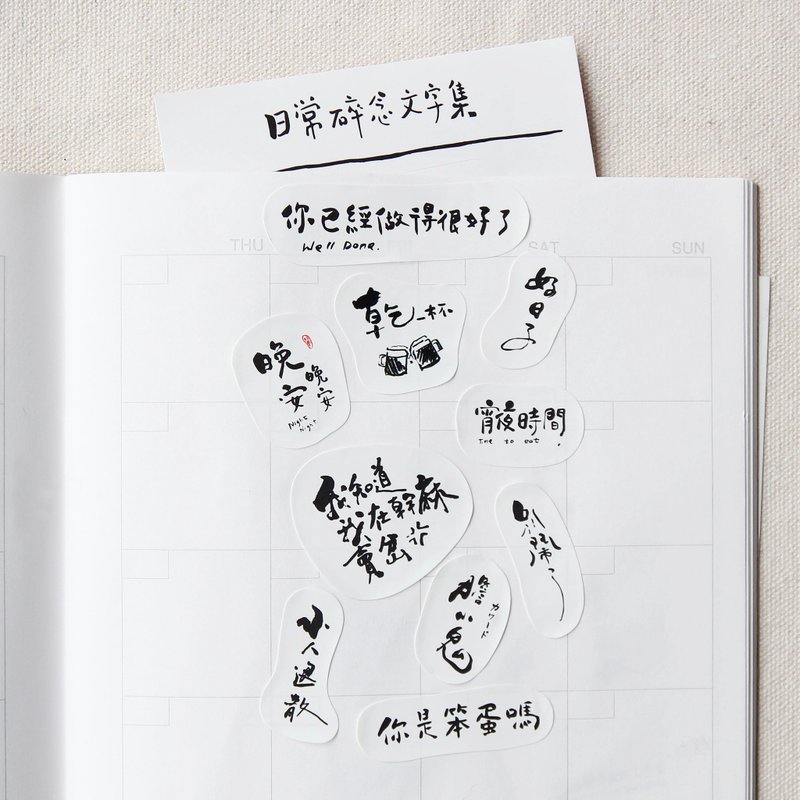 日常碎念文字集
你已經做得很好了
Well Done.
THU
SAT
SUN
好日子
乾一杯
晚安
晚安
Night
Night
宵夜時間
Time to eat
我知道
我在幹麻
膽小鬼
カワード
小人退散
你是笨蛋嗎